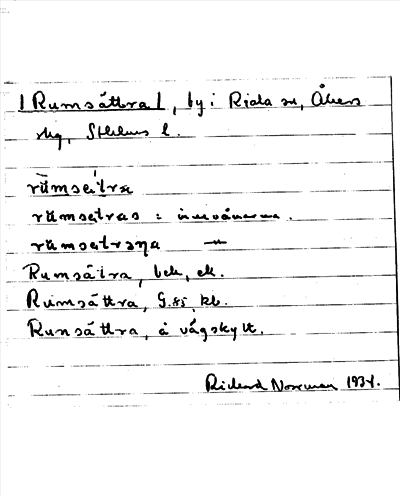 [Rumsättra], by i Riala sn, Åkers
skg, Sthlms l.
rùmsètra
rùmsètras = innevånarna.
rùmsètrəna —"—
Rumsätra, bek, ek.
Rumsättra, G.85, kb.
Runsättra, å vägskylt.
Richard Norrman 1934.